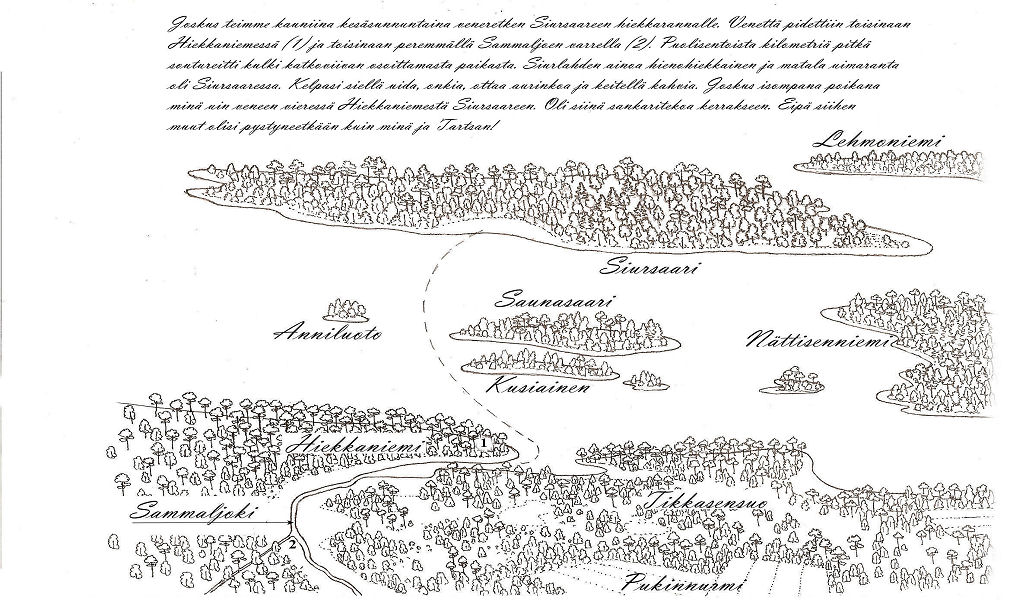 Joskus teimme kauniina kesäsunnuntaina veneretken Siursaareen hiekkarannalle. Venettä pidettiin toisinaan
Hiekkaniemessä (1) ja toisinaan peremmällä Sammaljoen varrella (2). Puolisentoista kilometriä pitkä
soutureitti kulki katkoviivan osoittamasta paikasta. Siurlahden ainoa hienohiekkainen ja matala uimaranta
oli Siursaaressa. Kelpasi siellä uida, onkia, ottaa aurinkoa ja keitellä kahvia. Joskus isompana poikana
minä uin veneen vieressä Hiekkaniemestä Siursaareen. Oli siinä sankaritekoa kerrakseen. Eipä siihen
muut olisi pystyneetkään kuin minä ja Tartsan!
Lehmoniemi
Siursaari
Saunasaari
Anniluoto
Nättisenniemi
Kusiainen
Hiekkaniemi
1
Tikkasensuo
Sammaljoki
2
Pukinnurmi